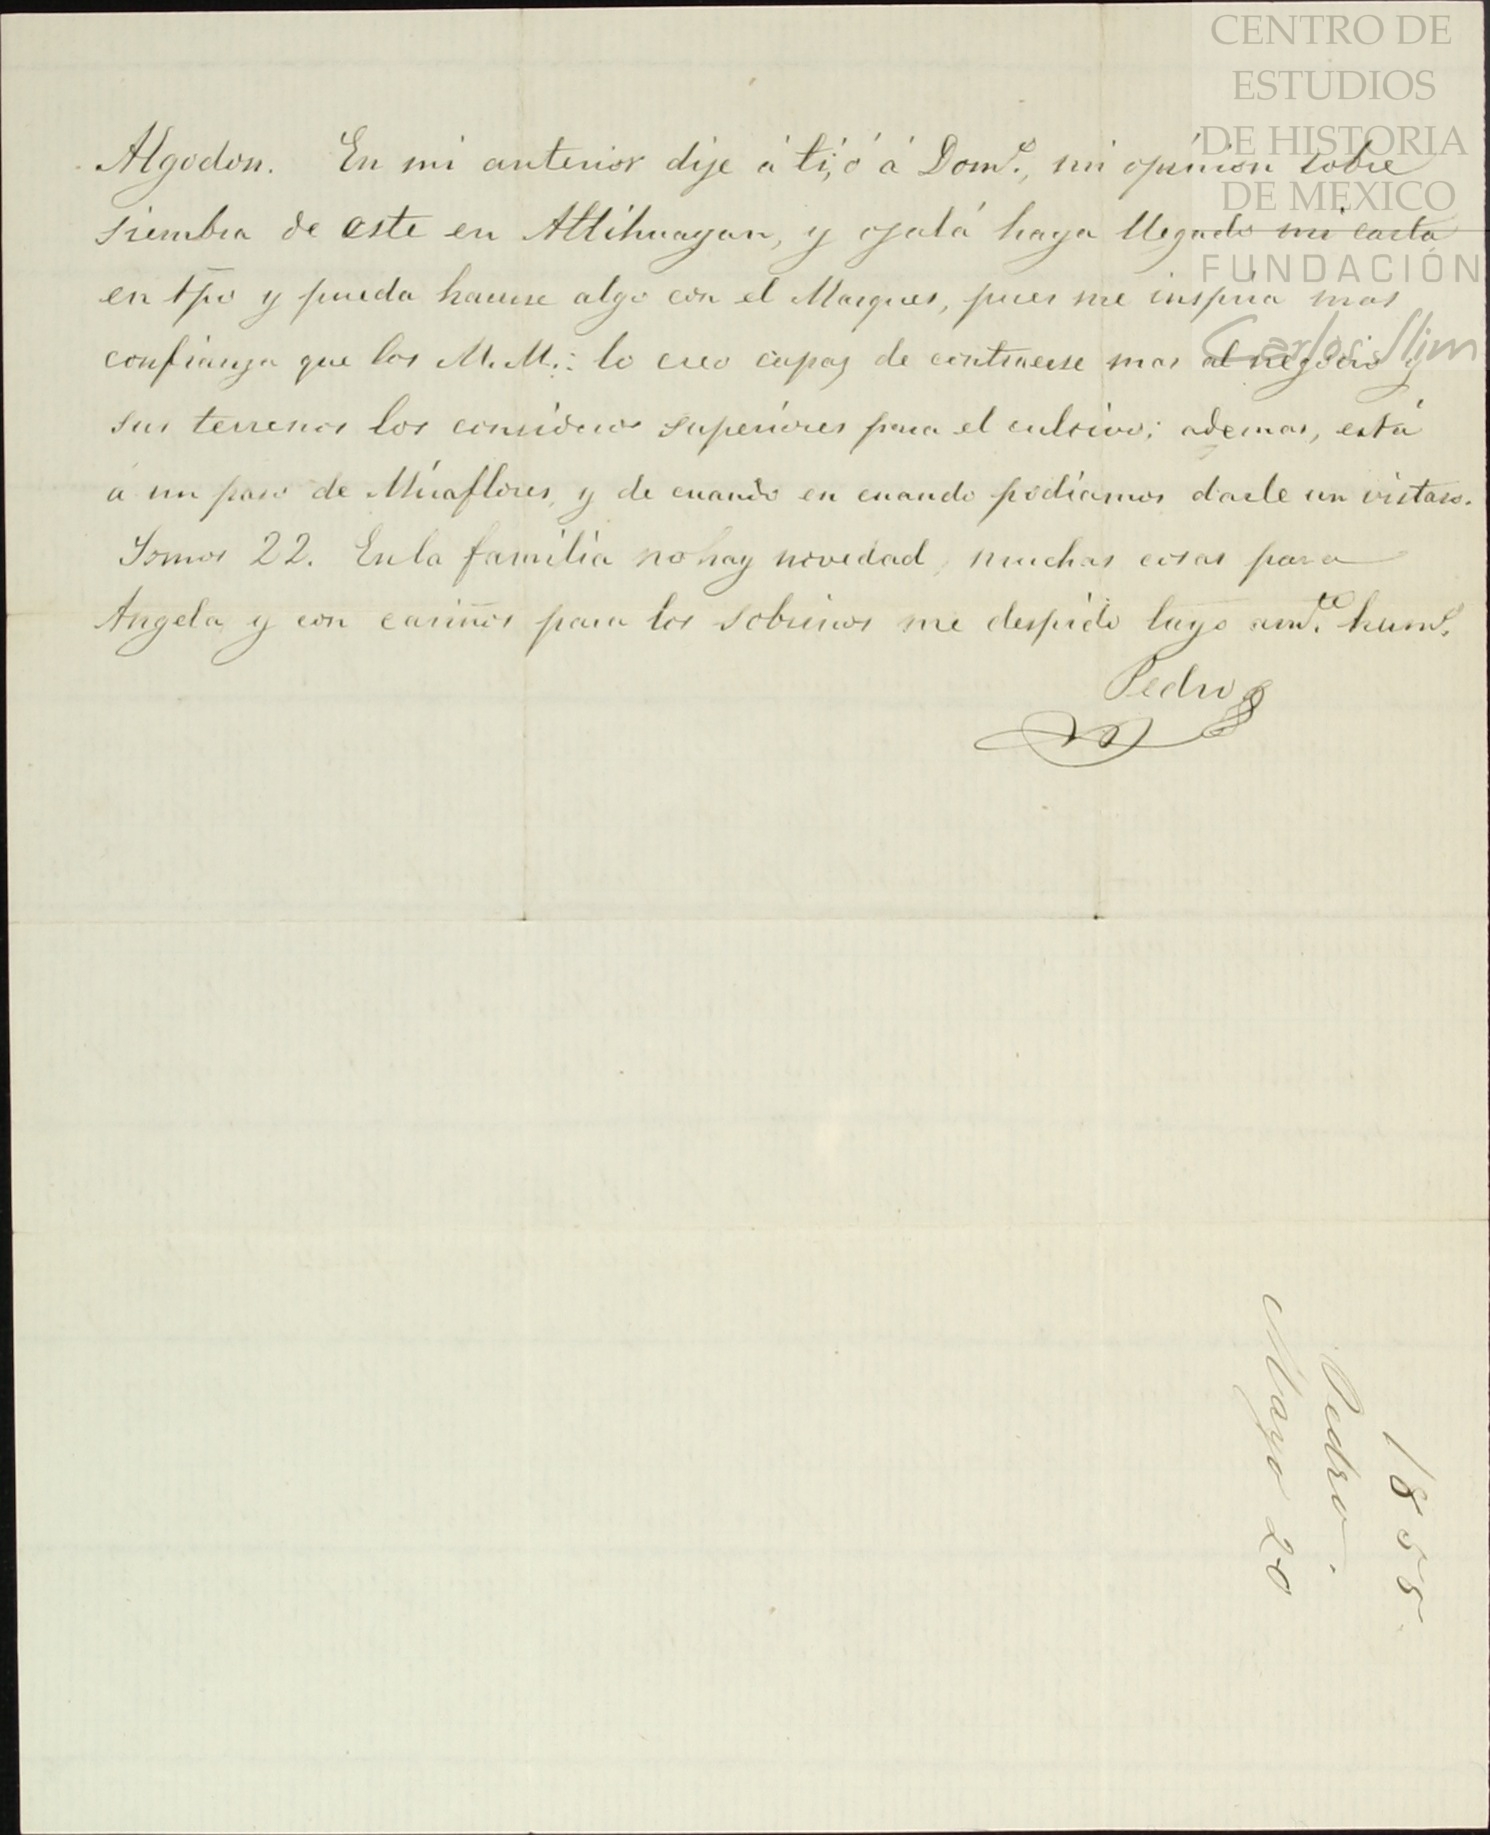 CENTRO DE
ESTUDIOS
DE HISTORIA
DE MÉXICO
FUNDACIÓN
Carlos Slim
Algodon. En mi anterior dije á ti, ó á Dom.º, mi opinion sobre
siembra de este en Atlihuayan, y ojalá haya llegado mi carta
en tpo y pueda hacerse algo con el Marques, pues me inspira mas
confianza que los M.M.: lo creo capaz de contraerse mas al negocio y
sus terrenos los considero superiores para el cultivo; ademas, está
á un paso de Miraflores, y de cuando en cuando podiamos darle un vistaso.
Somos 22. En la familia no hay novedad, muchas cosas para
Angela y con cariños para los sobrinos me despido tuyo am.te herm.º
Pedro
1855.
Pedro.
Mayo 20